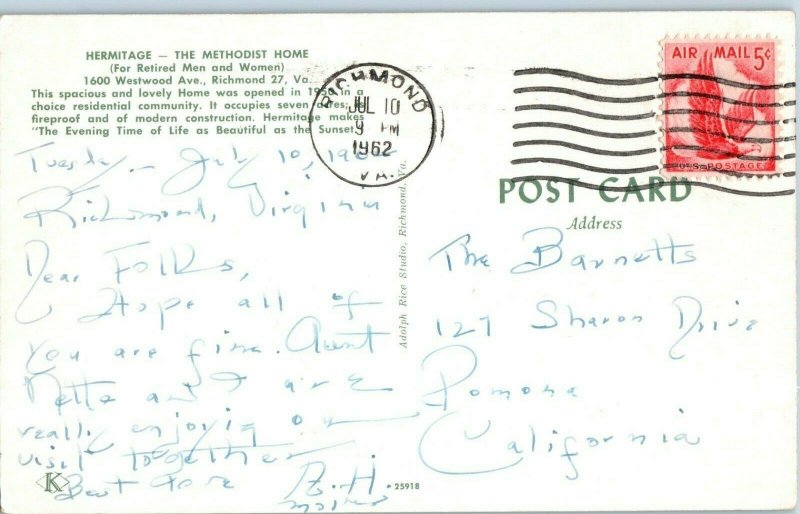 HERMITAGE — THE METHODIST HOME
(For Retired Men and Women)
1600 Westwood Ave., Richmond 27, Va.
This spacious and lovely Home was opened in in a
choice residential community. It occupies seven acres; is
fireproof and of modern construction. Hermitage makes
"The Evening Time of Life as Beautiful as the Sunset."
Tuesday - July 10, 1962
Richmond, Virginia
Dear Folks,
Hope all of
you are fine. Aunt
Netta and I are
really enjoying our
visit together
Best Love
K
25918
Adolph Rice Studio, Richmond, Va.
RICHMOND
JUL 10
9 PM
1962
VA.
AIR MAIL 5¢
U.S. POSTAGE
POST CARD
Address
The Barnetts
127 Sharon Drive
Pomona
California